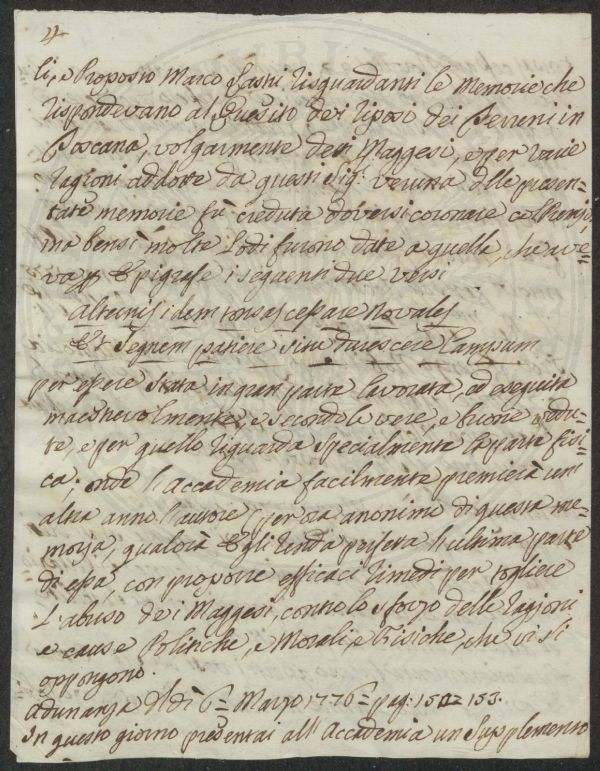 4
li, e Proposto Marco Lastri risguardanti le memorie che
rispondevano al Quesito dei riposi dei Terreni in
Toscana, volgarmente detti Maggesi, e per varie
ragioni addotte da questi Sigi. veruna delle presen=
tate memorie fù creduta doversi coronare col Premio,
ma bensì molte Lodi furono date a quella, che ave=
va p Epigrafe i seguenti due versi
Alternis idem tonsas cessare Novales
Et Segnem patiere situ durescere Campum
per essere stata in gran parte lavorata, ed eseguita
maestrevolmente, e secondo le vere, e buone
e per quello riguarda specialmente la parte fisi=
ca; onde l'Accademia facilmente premierà un
altro anno l'autore per ora anonimo di questa me=
moria, qualora Egli renda perfetta l'ultima parte
di essa, con proporre efficaci rimedi per togliere
L'abuso dei Maggesi, contro lo sforzo delle ragioni
e cause Politiche, e Morali, e Fisiche, che vi si
oppongono.
Adunanza del dì 6= Marzo 1776= pag. 150= 153.
In questo giorno presentai all'Accademia un Supplemento